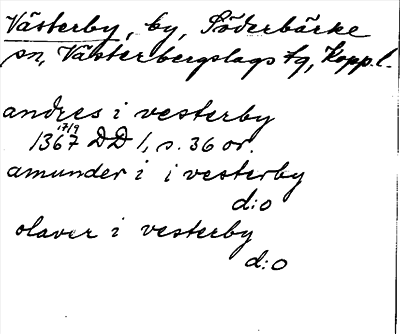 Västerby, by, Söderbärke
sn, Västerbergslags tg, Kopp.l.
andres i vesterby
17/9
1367 DD 1, s. 36 or.
amunder i i vesterby
d:o
olaver i vesterby
d:o